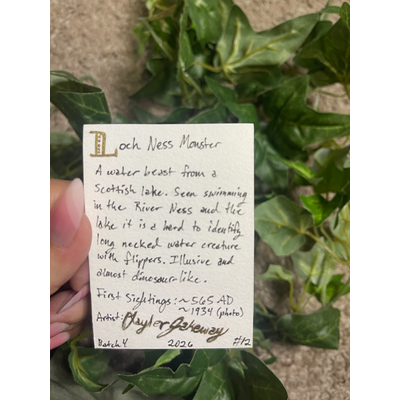 Loch Ness Monster
A water beast from a
Scottish lake. Seen swimming
in the River Ness and the
lake it is a hard to identify
long necked water creature
with flippers. Illusive and
almost dinosaur-like.
First Sightings: ~565 AD
~1934 (photo)
Artist:
Batch 4 2026 #12